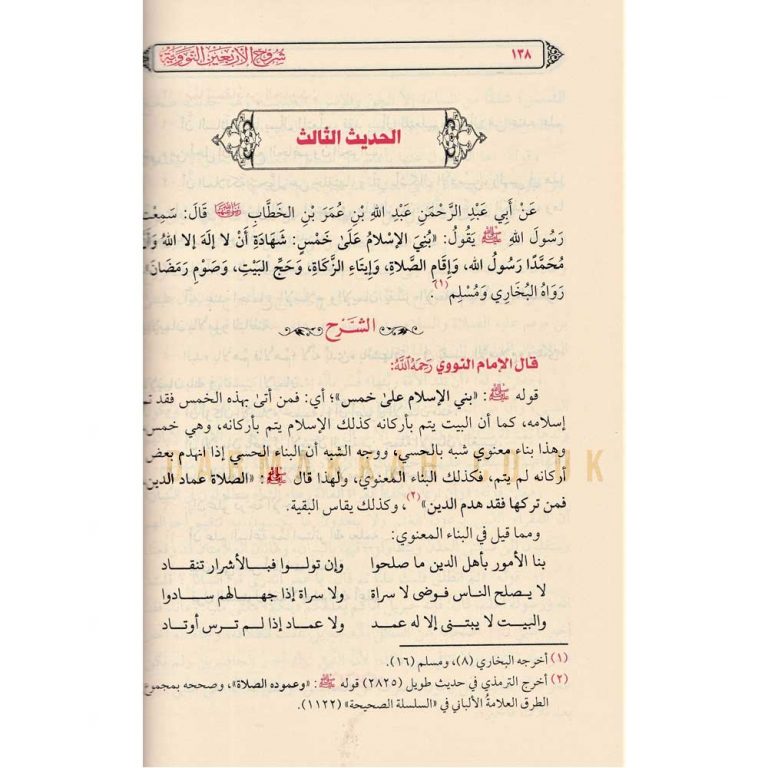 ١٣٨
شروح الأربعين النووية
الحديث الثالث
عَنْ أَبِي عَبْدِ الرَّحْمَنِ عَبْدِ اللهِ بْنِ عُمَرَ بْنِ الخَطَّابِ رضي الله عنهما قَالَ: سَمِعْت
رَسُولَ اللهِ ﷺ يَقُولُ: «بُنِيَ الإِسْلامُ عَلَىٰ خَمْسٍ: شَهَادَةِ أَنْ لا إِلَهَ إِلا اللهُ وَأَنَّ
مُحَمَّدًا رَسُولُ الله، وَإِقَامِ الصَّلاةِ، وَإِيتَاءِ الزَّكَاةِ، وَحَجِّ البَيْتِ، وَصَوْمِ رَمَضَانَ».
رَوَاهُ البُخَارِي وَمُسْلِم(١).
الشَّرْح
قال الإمام النووي رَحِمَهُ اللَّهُ:
قوله ﷺ: «بني الإسلام علىٰ خمس»؛ أي: فمن أتىٰ بهذه الخمس فقد تم
إسلامه، كما أن البيت يتم بأركانه كذلك الإسلام يتم بأركانه، وهي خمس
وهذا بناء معنوي شبه بالحسي، ووجه الشبه أن البناء الحسي إذا انهدم بعض
أركانه لم يتم، فكذلك البناء المعنوي، ولهذا قال ﷺ: «الصلاة عماد الدين،
فمن تركها فقد هدم الدين»(٢)، وكذلك يقاس البقية.
ومما قيل في البناء المعنوي:
بنا الأمور بأهل الدين ما صلحوا وإن تولوا فبالأشرار تنقاد
لا يصلح الناس فوضى لا سراة ولا سراة إذا جهالهم سادوا
والبيت لا يبتنى إلا له عمد ولا عماد إذا لم ترس أوتاد
(١) أخرجه البخاري (٨)، ومسلم (١٦).
(٢) أخرج الترمذي في حديث طويل (٢٨٢٥) قوله ﷺ: «وعموده الصلاة»، وصححه بمجموع
الطرق العلامةُ الألباني في «السلسلة الصحيحة» (١١٢٢).
DARMAKKAH.CO.UK